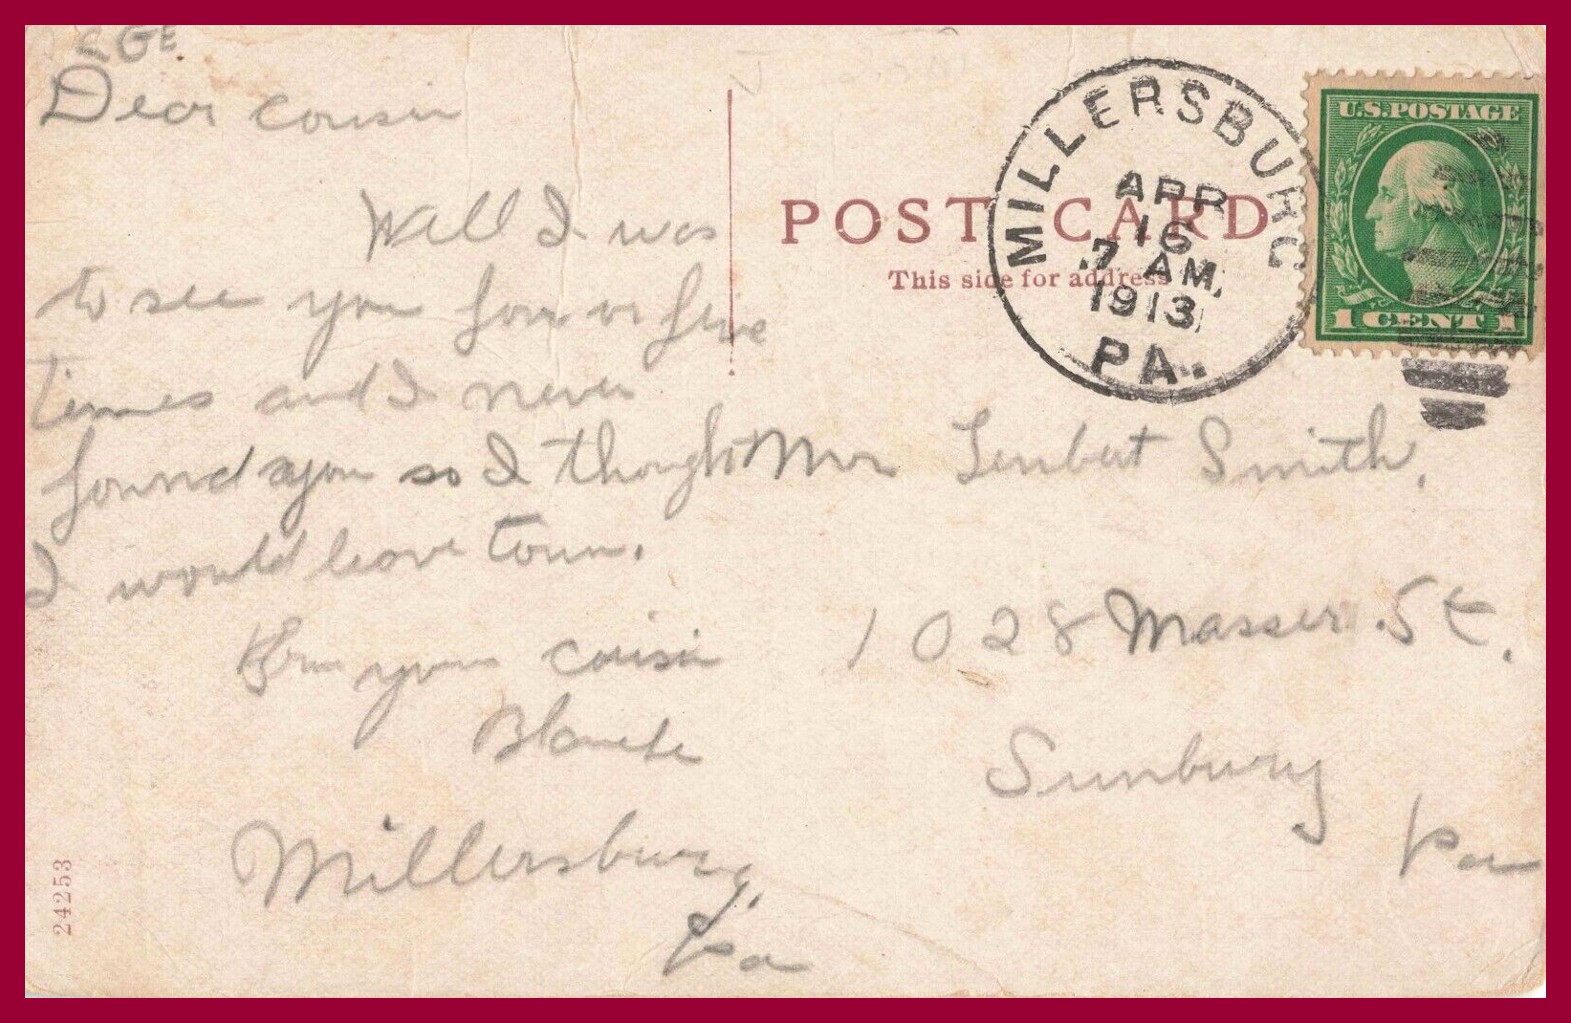 Dear cousin
Well I was
to see you four or five
times and I never
found you so I thought
I would leave town.
From your cousin
Blanche
Millersburg,
Pa
24253
POST CARD
This side for address
MILLERSBURG
APR
16
7 AM
1913
PA.
U.S. POSTAGE
1 CENT 1
Mrs Smith,
1028 Masser St.
Sunbury
Pa